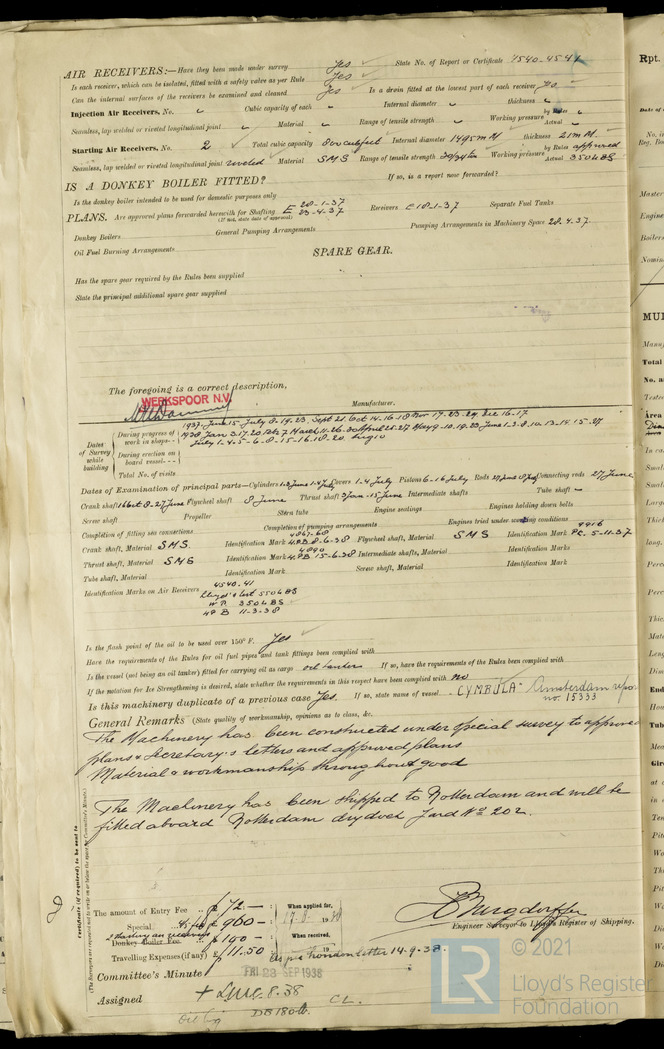 AIR RECEIVERS:—Have they been made under survey Yes State No. of Report or Certificate 4540-4541
Is each receiver, which can be isolated, fitted with a safety valve as per Rule Yes
Can the internal surfaces of the receivers be examined and cleaned Yes Is a drain fitted at the lowest part of each receiver Yes
Injection Air Receivers, No. Cubic capacity of each Internal diameter thickness
Seamless, lap welded or riveted longitudinal joint Material Range of tensile strength Working pressure by Rules Actual
Starting Air Receivers, No. 2 Total cubic capacity 800 cubfeet Internal diameter 1495 mM thickness 21 mM.
Seamless, lap welded or riveted longitudinal joint riveted Material SMS Range of tensile strength 30/34 ton Working pressure by Rules approved Actual 350 LBS
IS A DONKEY BOILER FITTED? If so, is a report now forwarded?
Is the donkey boiler intended to be used for domestic purposes only
PLANS. Are approved plans forwarded herewith for Shafting E 28-1-37 23-4-37 Receivers E 18-1-37 Separate Fuel Tanks
(If not, state date of approval)
Donkey Boilers General Pumping Arrangements Pumping Arrangements in Machinery Space 28.4.37
Oil Fuel Burning Arrangements
SPARE GEAR.
Has the spare gear required by the Rules been supplied
State the principal additional spare gear supplied
The foregoing is a correct description,
WERKSPOOR N.V.
Manufacturer.
Dates of Survey while building
During progress of work in shops - - 1937 June 15 July 8-19-23 Sept 21 Oct 14-16-18 Nov 17-23-29 Dec 16-17
1938 Jan 3-17-20 Feb 7 March 11-26-30 April 25-27 May 9-10-19-23 June 1-3-8-10-13-15-27
July 1-4-5-6-8-15-16-18-20 Aug 10
During erection on board vessel - -
Total No. of visits
Dates of Examination of principal parts—Cylinders 1-3 June 1-4 July Covers 1-4 July Pistons 6-16 July Rods Connecting rods 27 June
Crank shaft 16 Oct 8-27 June Flywheel shaft 8 June Thrust shaft 3 Jan-15 June Intermediate shafts Tube shaft
Screw shaft Propeller Stern tube Engine seatings Engines holding down bolts
Completion of fitting sea connections Completion of pumping arrangements Engines tried under working conditions
Crank shaft, Material SMS. Identification Mark 4867-68 HPB 8-6-38 Flywheel shaft, Material SMS Identification Mark 9916 PC. 5-11-37
Thrust shaft, Material SMS Identification Mark 4890 HPB 15-6-38 Intermediate shafts, Material Identification Marks
Tube shaft, Material Identification Mark Screw shaft, Material Identification Mark
Identification Marks on Air Receivers 4540.41
Lloyd's test 550 LBS
W P. 350 LBS
HP B 11-3-38
Is the flash point of the oil to be used over 150° F. Yes
Have the requirements of the Rules for oil fuel pipes and tank fittings been complied with
Is the vessel (not being an oil tanker) fitted for carrying oil as cargo oil tanker If so, have the requirements of the Rules been complied with
If the notation for Ice Strengthening is desired, state whether the requirements in this respect have been complied with no
Is this machinery duplicate of a previous case Yes. If so, state name of vessel "CYMBULA" Amsterdam report
no. 15333
General Remarks (State quality of workmanship, opinions as to class, &c.
The Machinery has been constructed under special survey to approved
plans & Secretary's letters and approved plans
Material & workmanship throughout good
The Machinery has been shipped to Rotterdam and will be
fitted aboard Rotterdam drydock Yard No 202.
Certificate (if required) to be sent to
(The Surveyors are requested not to write on or below the space for Committee's Minute.)
The amount of Entry Fee .. £ 72 — : When applied for,
Special .. £ 960 — : 17.8 1938
2 starting air receivers
Donkey Boiler Fee .. £ 140 — : When received,
Travelling Expenses (if any) £ 11.50 19
As per London letter 14-9-38.
Engineer Surveyor to Lloyd's Register of Shipping.
Committee's Minute FRI 23 SEP 1938
Assigned + LMC 8.38 CL.
DB 180 lb.
© 2021
Lloyd's Register
Foundation
LR
Rpt.